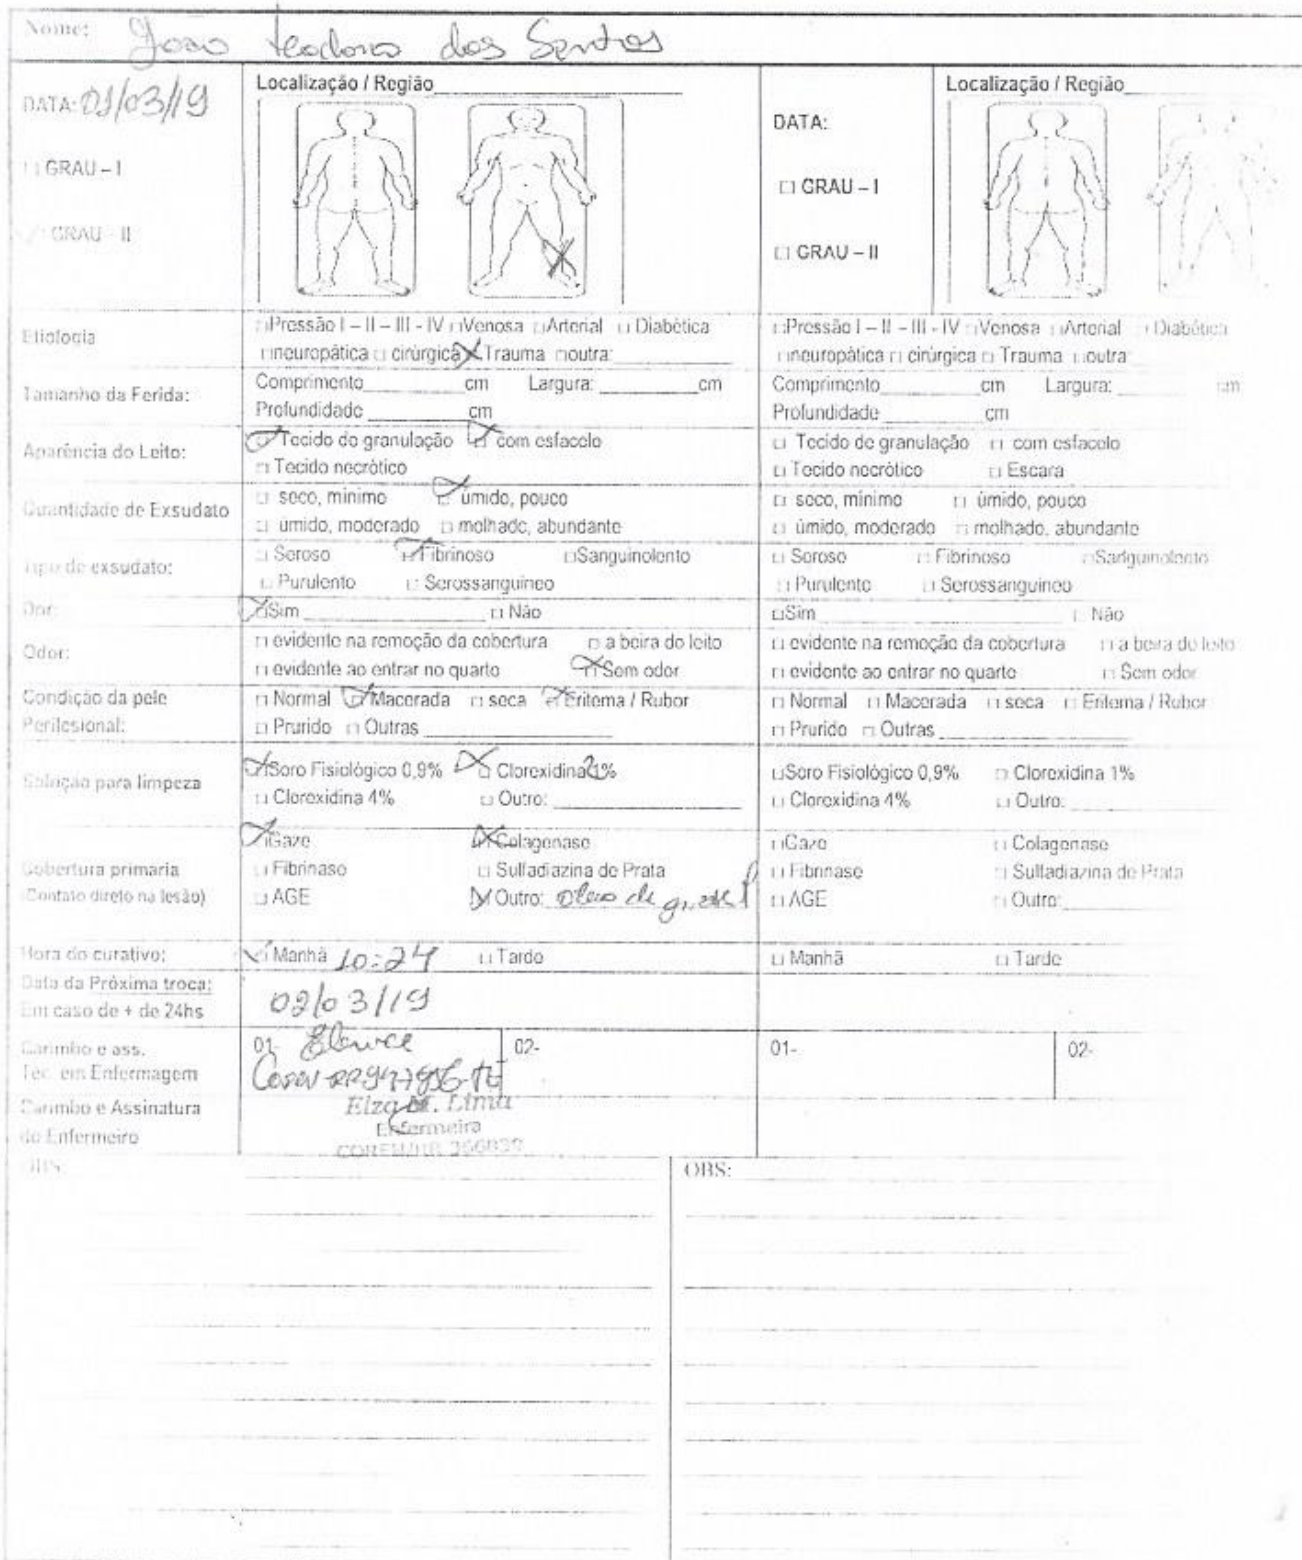 Nome: João Teodoro dos Santos
DATA: 01/03/19
□ GRAU – I
GRAU – II
Localização / Região
DATA:
□ GRAU – I
□ GRAU – II
Localização / Região
Etiologia
□Pressão I – II – III - IV □Venosa □Arterial □ Diabética
□neuropática □ cirúrgica X Trauma □outra:
□Pressão I – II – III - IV □Venosa □Arterial □ Diabética
□neuropática □ cirúrgica □ Trauma □outra:
Tamanho da Ferida:
Comprimento cm Largura: cm
Profundidade cm
Comprimento cm Largura: cm
Profundidade cm
Aparência do Leito:
Tecido de granulação com esfacelo
□ Tecido necrótico
□ Tecido de granulação □ com esfacelo
□ Tecido necrótico □ Escara
Quantidade de Exsudato
□ seco, mínimo úmido, pouco
□ úmido, moderado □ molhado, abundante
□ seco, mínimo □ úmido, pouco
□ úmido, moderado □ molhado, abundante
Tipo de exsudato:
□ Seroso Fibrinoso □Sanguinolento
□ Purulento □ Serossanguíneo
□ Seroso □ Fibrinoso □Sanguinolento
□ Purulento □ Serossanguíneo
Dor:
Sim □ Não
□Sim □ Não
Odor:
□ evidente na remoção da cobertura □ a beira do leito
□ evidente ao entrar no quarto Sem odor
□ evidente na remoção da cobertura □ a beira do leito
□ evidente ao entrar no quarto □ Sem odor
Condição da pele
Perilesional:
□ Normal Macerada □ seca Eritema / Rubor
□ Prurido □ Outras
□ Normal □ Macerada □ seca □ Eritema / Rubor
□ Prurido □ Outras
Solução para limpeza
Soro Fisiológico 0,9% Clorexidina 2%
□ Clorexidina 4% □ Outro:
□Soro Fisiológico 0,9% □ Clorexidina 1%
□ Clorexidina 4% □ Outro:
Cobertura primaria
(Contato direto na lesão)
Gaze Colagenase
□ Fibrinase □ Sulfadiazina de Prata
□ AGE Outro: óleo de girassol
□Gaze □ Colagenase
□ Fibrinase □ Sulfadiazina de Prata
□ AGE □ Outro:
Hora do curativo:
Manhã 10:24 □ Tarde
□ Manhã □ Tarde
Data da Próxima troca:
Em caso de + de 24hs
02/03/19
Carimbo e ass.
Téc. em Enfermagem
01- 02-
Coren-RR 947956-TE
01- 02-
Carimbo e Assinatura
do Enfermeiro
Elza M. Lima
Enfermeira
COREN/RR
OBS:
OBS: